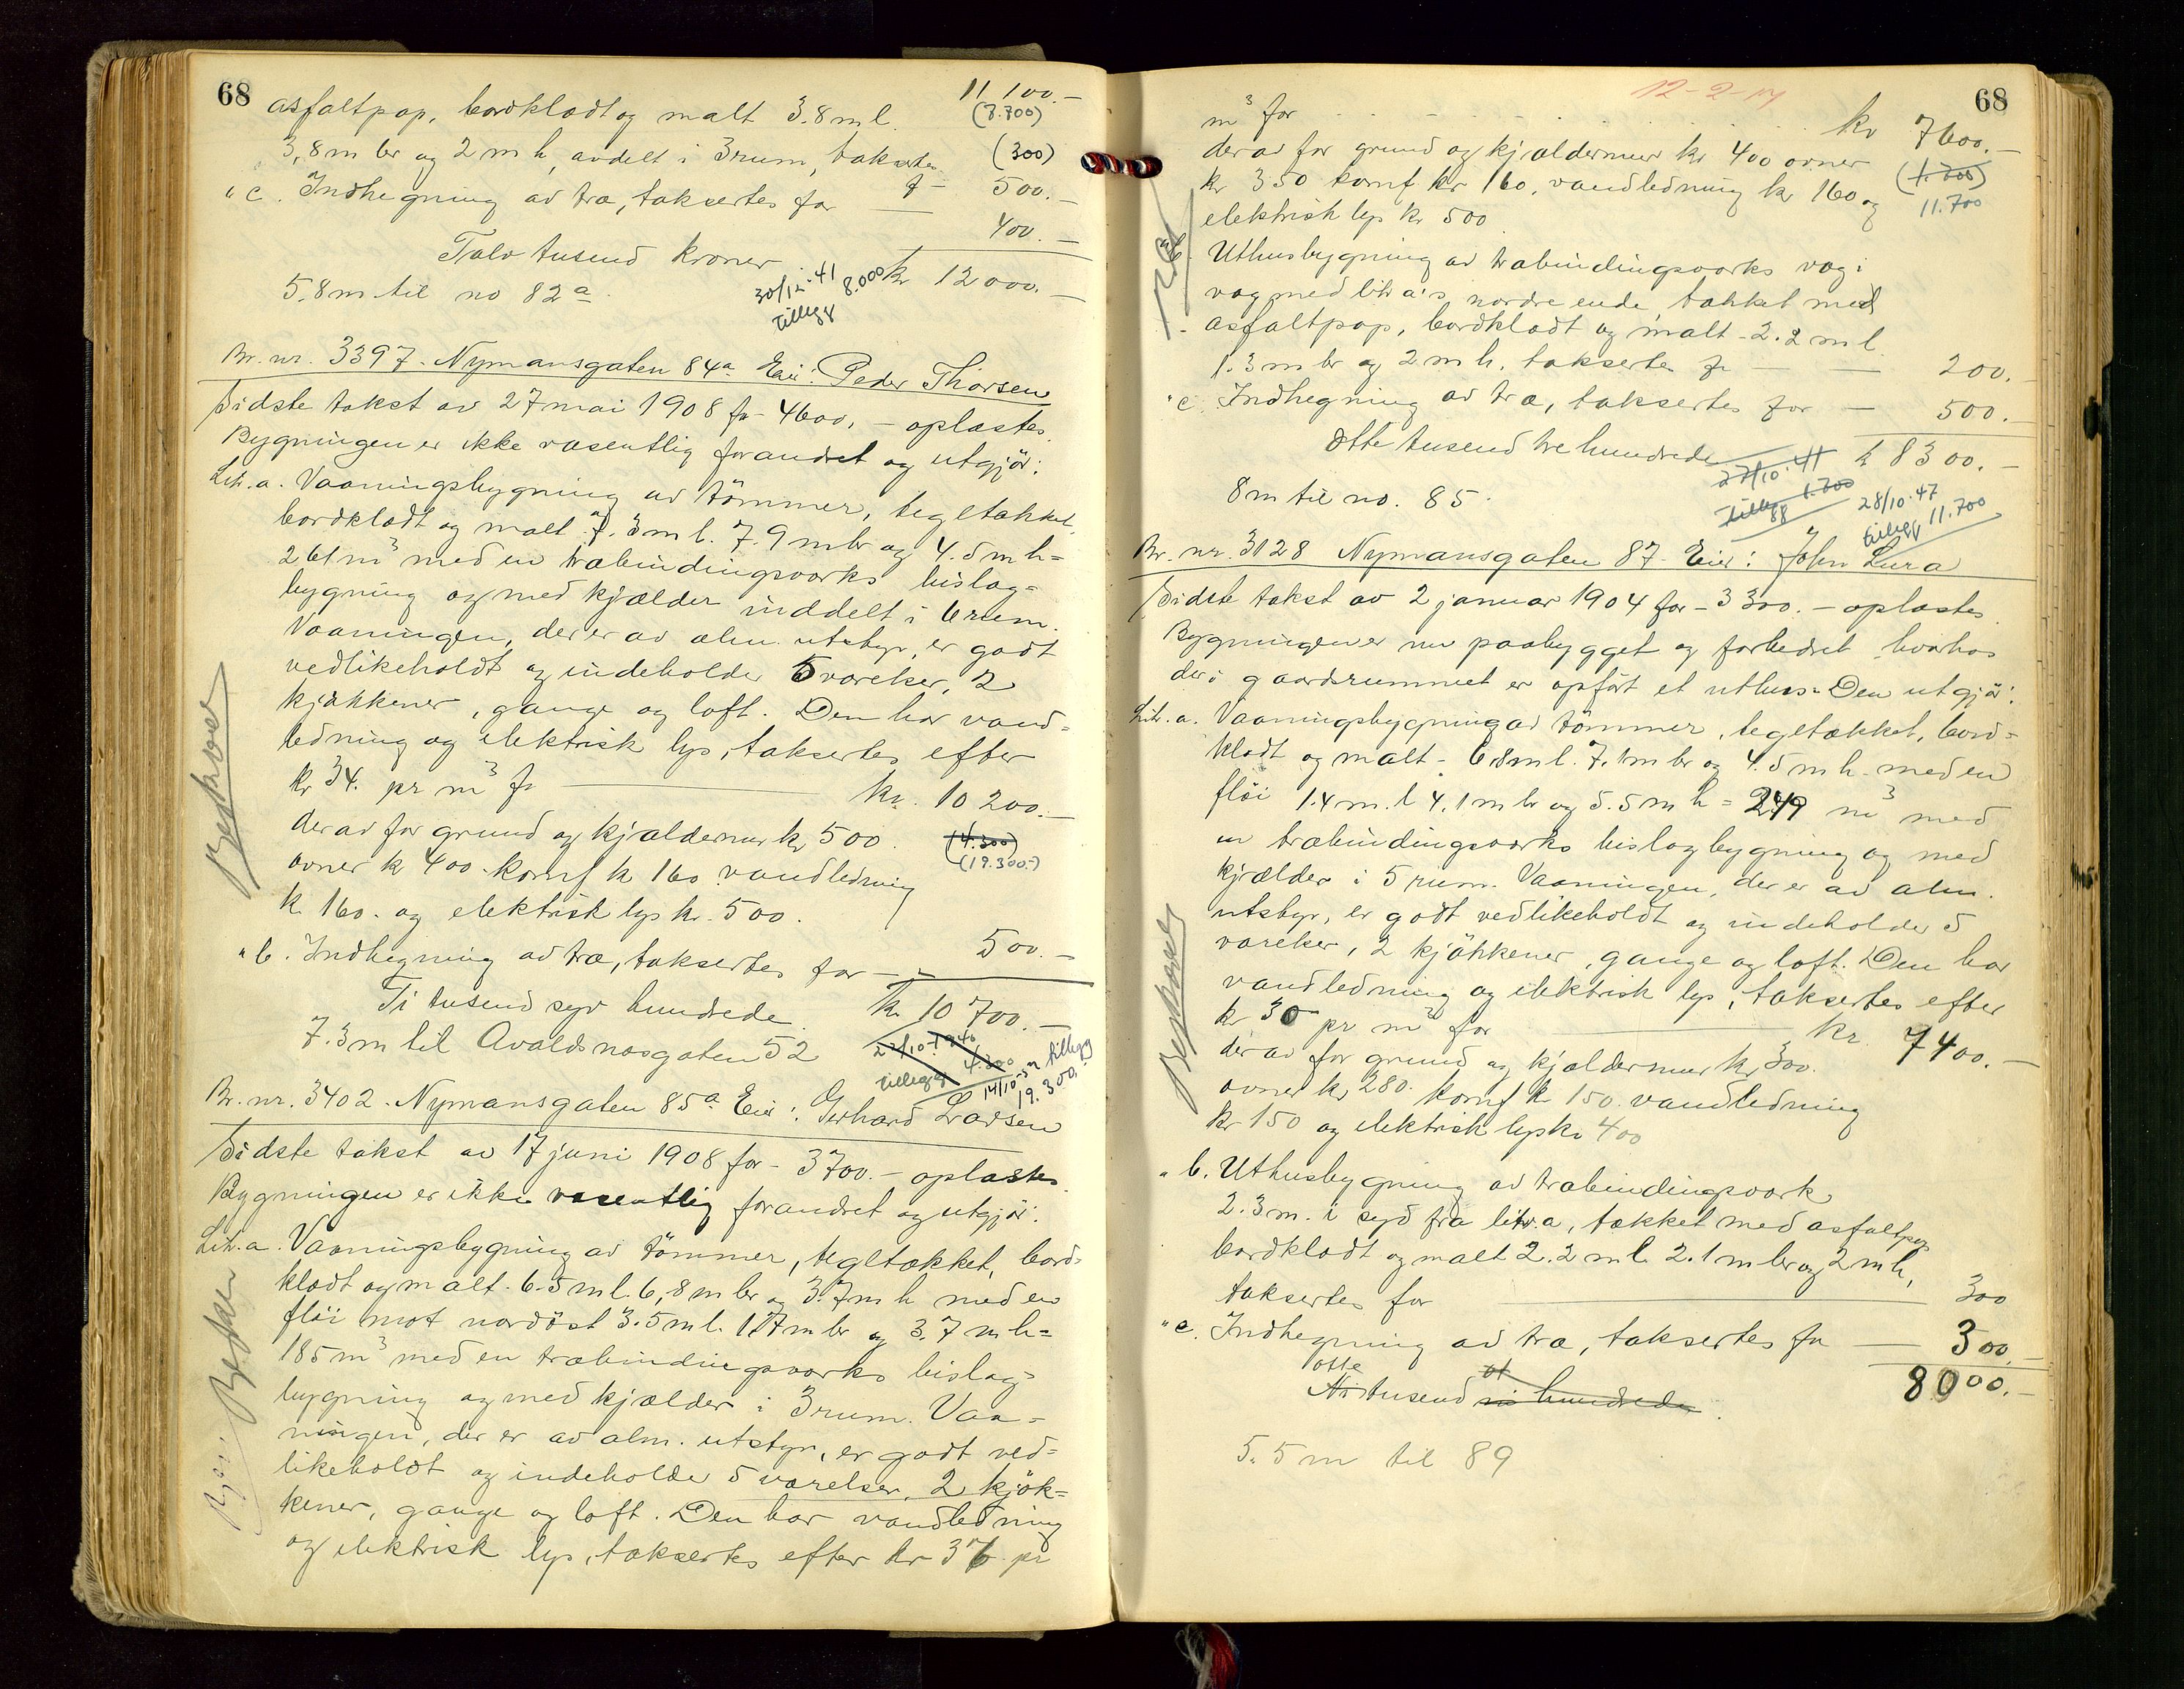 68
11 100.-
asfaltpap, bordklædt og malt 3.8 m l.
(7.700)
3,8 m br og 2 m h, avdelt i 3 rum, takseres
(300)
f - 500.-
" c. Indhegning av træ, taksertes for — 400.-
Tolv tusend kroner kr 12 000.-
30/12-41 8.000
tillegg
5,8 m til no 82 a
Br. nr. 3397 - Nymansgaten 84a Eier: Peder Thorsen
Sidste takst av 27 mai 1908 for 4600.- oplæstes.
Bygningen er ikke væsentlig forandret og utgjör:
Litr. a. Vaaningsbygning av tömmer, tegltækket,
bordklædt og malt 7.3 m l. 7.9 m br og 4.5 m h =
261 m3 med en træbindingsværks bislag-
bygning og med kjælder inddelt i 6 rum.
Vaaningen, der er av alm. utstyr, er godt
vedlikeholdt og indeholder 5 værelser, 2
kjøkkener, gange og loft. Den har vand-
ledning og elektrisk lys, taksertes efter
kr 34. pr m3 for — kr. 10 200.-
derav for grund og kjældermur kr 500.
(4.300)
(19.300.-)
ovner kr 400. komf kr 160 vandledning
kr. 160. og elektrisk lys kr. 500.
Beskåret
" b. Indhegning av træ, taksertes for - - 500.-
Ti tusend syv hundrede. kr. 10 700.-
7.3 m til Avaldsnæsgaten 52
22/10-1940
tillegg 4.300
14/10-52 tillegg
19.300.-
Br. nr. 3402 - Nymansgaten 85a Eier: Gerhard Larsen
Sidste takst av 17 juni 1908 for - 3700.- oplæstes.
Bygningen er ikke væsentlig forandret og utgjör:
Litr. a. Vaaningsbygning av tömmer, tegltækket, bord-
klædt og malt. 6.5 m l. 6,8 m br og 3.7 m h med en
flöi mot nordöst 3.5 m l. 1.7 m br og 3.7 m h =
185 m3 med en træbindingsværks bislag-
bygning og med kjælder i 3 rum. Vaa-
ningen, der er av alm. utstyr, er godt ved-
likeholdt og indeholder 5 værelser, 2 kjök-
kener, gange og loft. Den har vandledning
og elektrisk lys, taksertes efter kr 36 pr
68
12-2-
m3 for . . . . . . . . kr 7600.-
derav for grund og kjældermur kr 400 ovner
(1.700)
kr 350 komf kr 160, vandledning kr 160 og
11.700
elektrisk lys kr 500
b. Uthusbygning av træbindingsværks væg i
væg med litr a's nordre ende tækket med
asfaltpap, bordklædt og malt - 2.2 m l.
1.3 m br og 2 m h. taksertes for — — 200.-
" c. Indhegning av træ, taksertes for — 500.-
Otte tusend tre hundrede kr 8300.-
27/10-41
tillegg 1.700
28/10-47
tillegg 11.700
8 m til no. 85.
Br. nr. 3128 Nymansgaten 87 - Eier: John Lura
Sidste takst av 2 januar 1904 for - 3300.- oplæstes.
Bygningen er nu paabygget og forbedret hvorhos
der i gaardsrummet er opført et uthus - Den utgjör:
Litr. a. Vaaningsbygning av tömmer, tegltækket, bord-
klædt og malt - 6.8 m l. 7.1 m br og 4.5 m h - med en
flöi 1.4 m. l 4.1 m br og 5.5 m h = 249 m3 med
en træbindingsværks bislagbygning og med
kjælder i 5 rum. Vaaningen, der er av alm.
utstyr, er godt vedlikeholdt og indeholder 5
værelser, 2 kjökkener, gange og loft. Den har
vandledning og elektrisk lys, taksertes efter
kr 30 pr m3 for — kr. 7400.-
derav for grund og kjældermur kr 300.
ovner kr 280. komf kr 150. vandledning
kr 150 og elektrisk lys kr 400
Beskåret
" b. Uthusbygning av træbindingsværk
2.3 m. i syd fra litr. a, tækket med asfaltpap
bordklædt og malt 2.2 m l. 2.1 m br og 2 m h,
taksertes for — 300
" c. Indhegning av træ, taksertes for — 300.-
otte
Ni tusend ni hundrede. 8000.-
5.5 m til 89